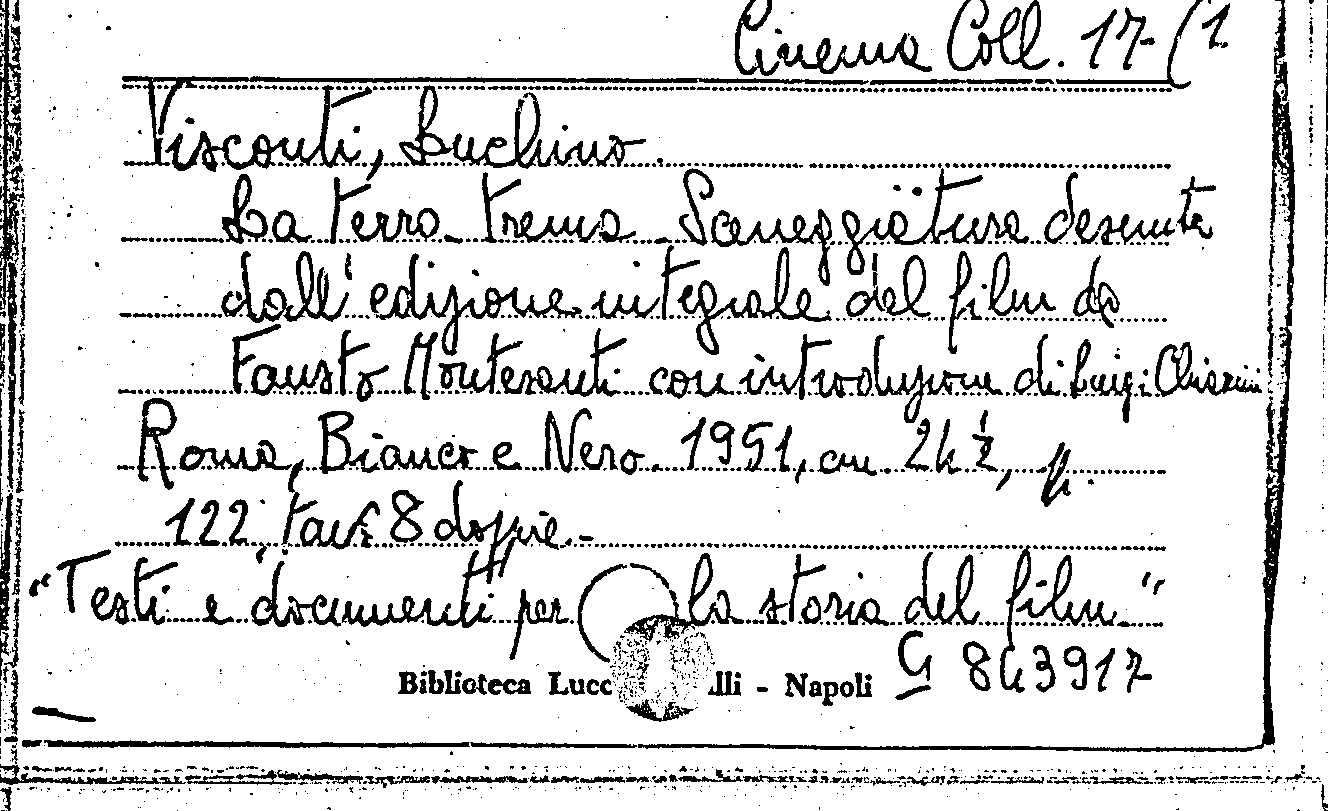 Cinema Coll. 17-(1.
Visconti, Luchino.
La terra trema. Sceneggiatura desunta
dall'edizione integrale del film da
Fausto Montesanti con introduzione di Luigi Chiarini
Roma, Bianco e Nero. 1951, cm. 24 ½, p.
122, tav. 8 doppie.-
"Testi e documenti per la storia del film."
Biblioteca Lucc lli - Napoli G 843917